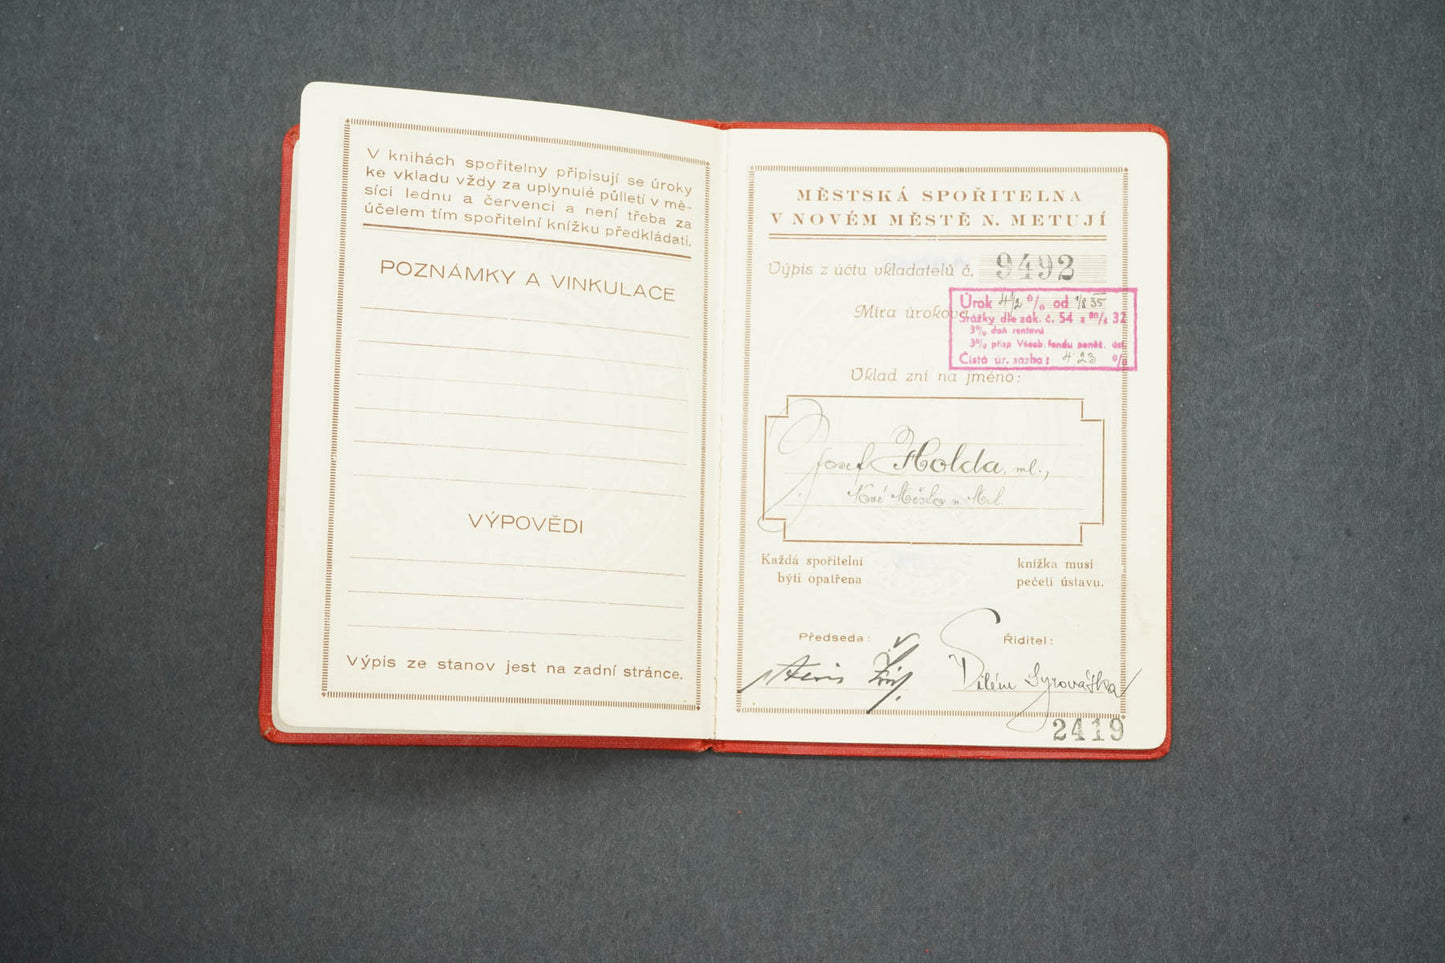 V knihách spořitelny připisují se úroky
ke vkladu vždy za uplynulé půlletí v mě-
síci lednu a červenci a není třeba za
účelem tím spořitelní knížku předkládati.
POZNÁMKY A VINKULACE
VÝPOVĚDI
Výpis ze stanov jest na zadní stránce.
MĚSTSKÁ SPOŘITELNA
V NOVÉM MĚSTĚ N. METUJÍ
Výpis z účtu vkladatelů č. 9492
Míra úrokova
Úrok 4½ % od 1/8 35
Srážky dle zák. č. 54 z 32
3% daň rentová
3% přísp Všeob. fondu peněž. úst.
Čistá úr. sazba: 4 23 %
Vklad zní na jméno:
Josef Holda, ml.,
Nové Město n. Met.
Každá spořitelní knížka musí
býti opatřena pečetí ústavu.
Předseda: Řiditel:
Syrovátka
2419